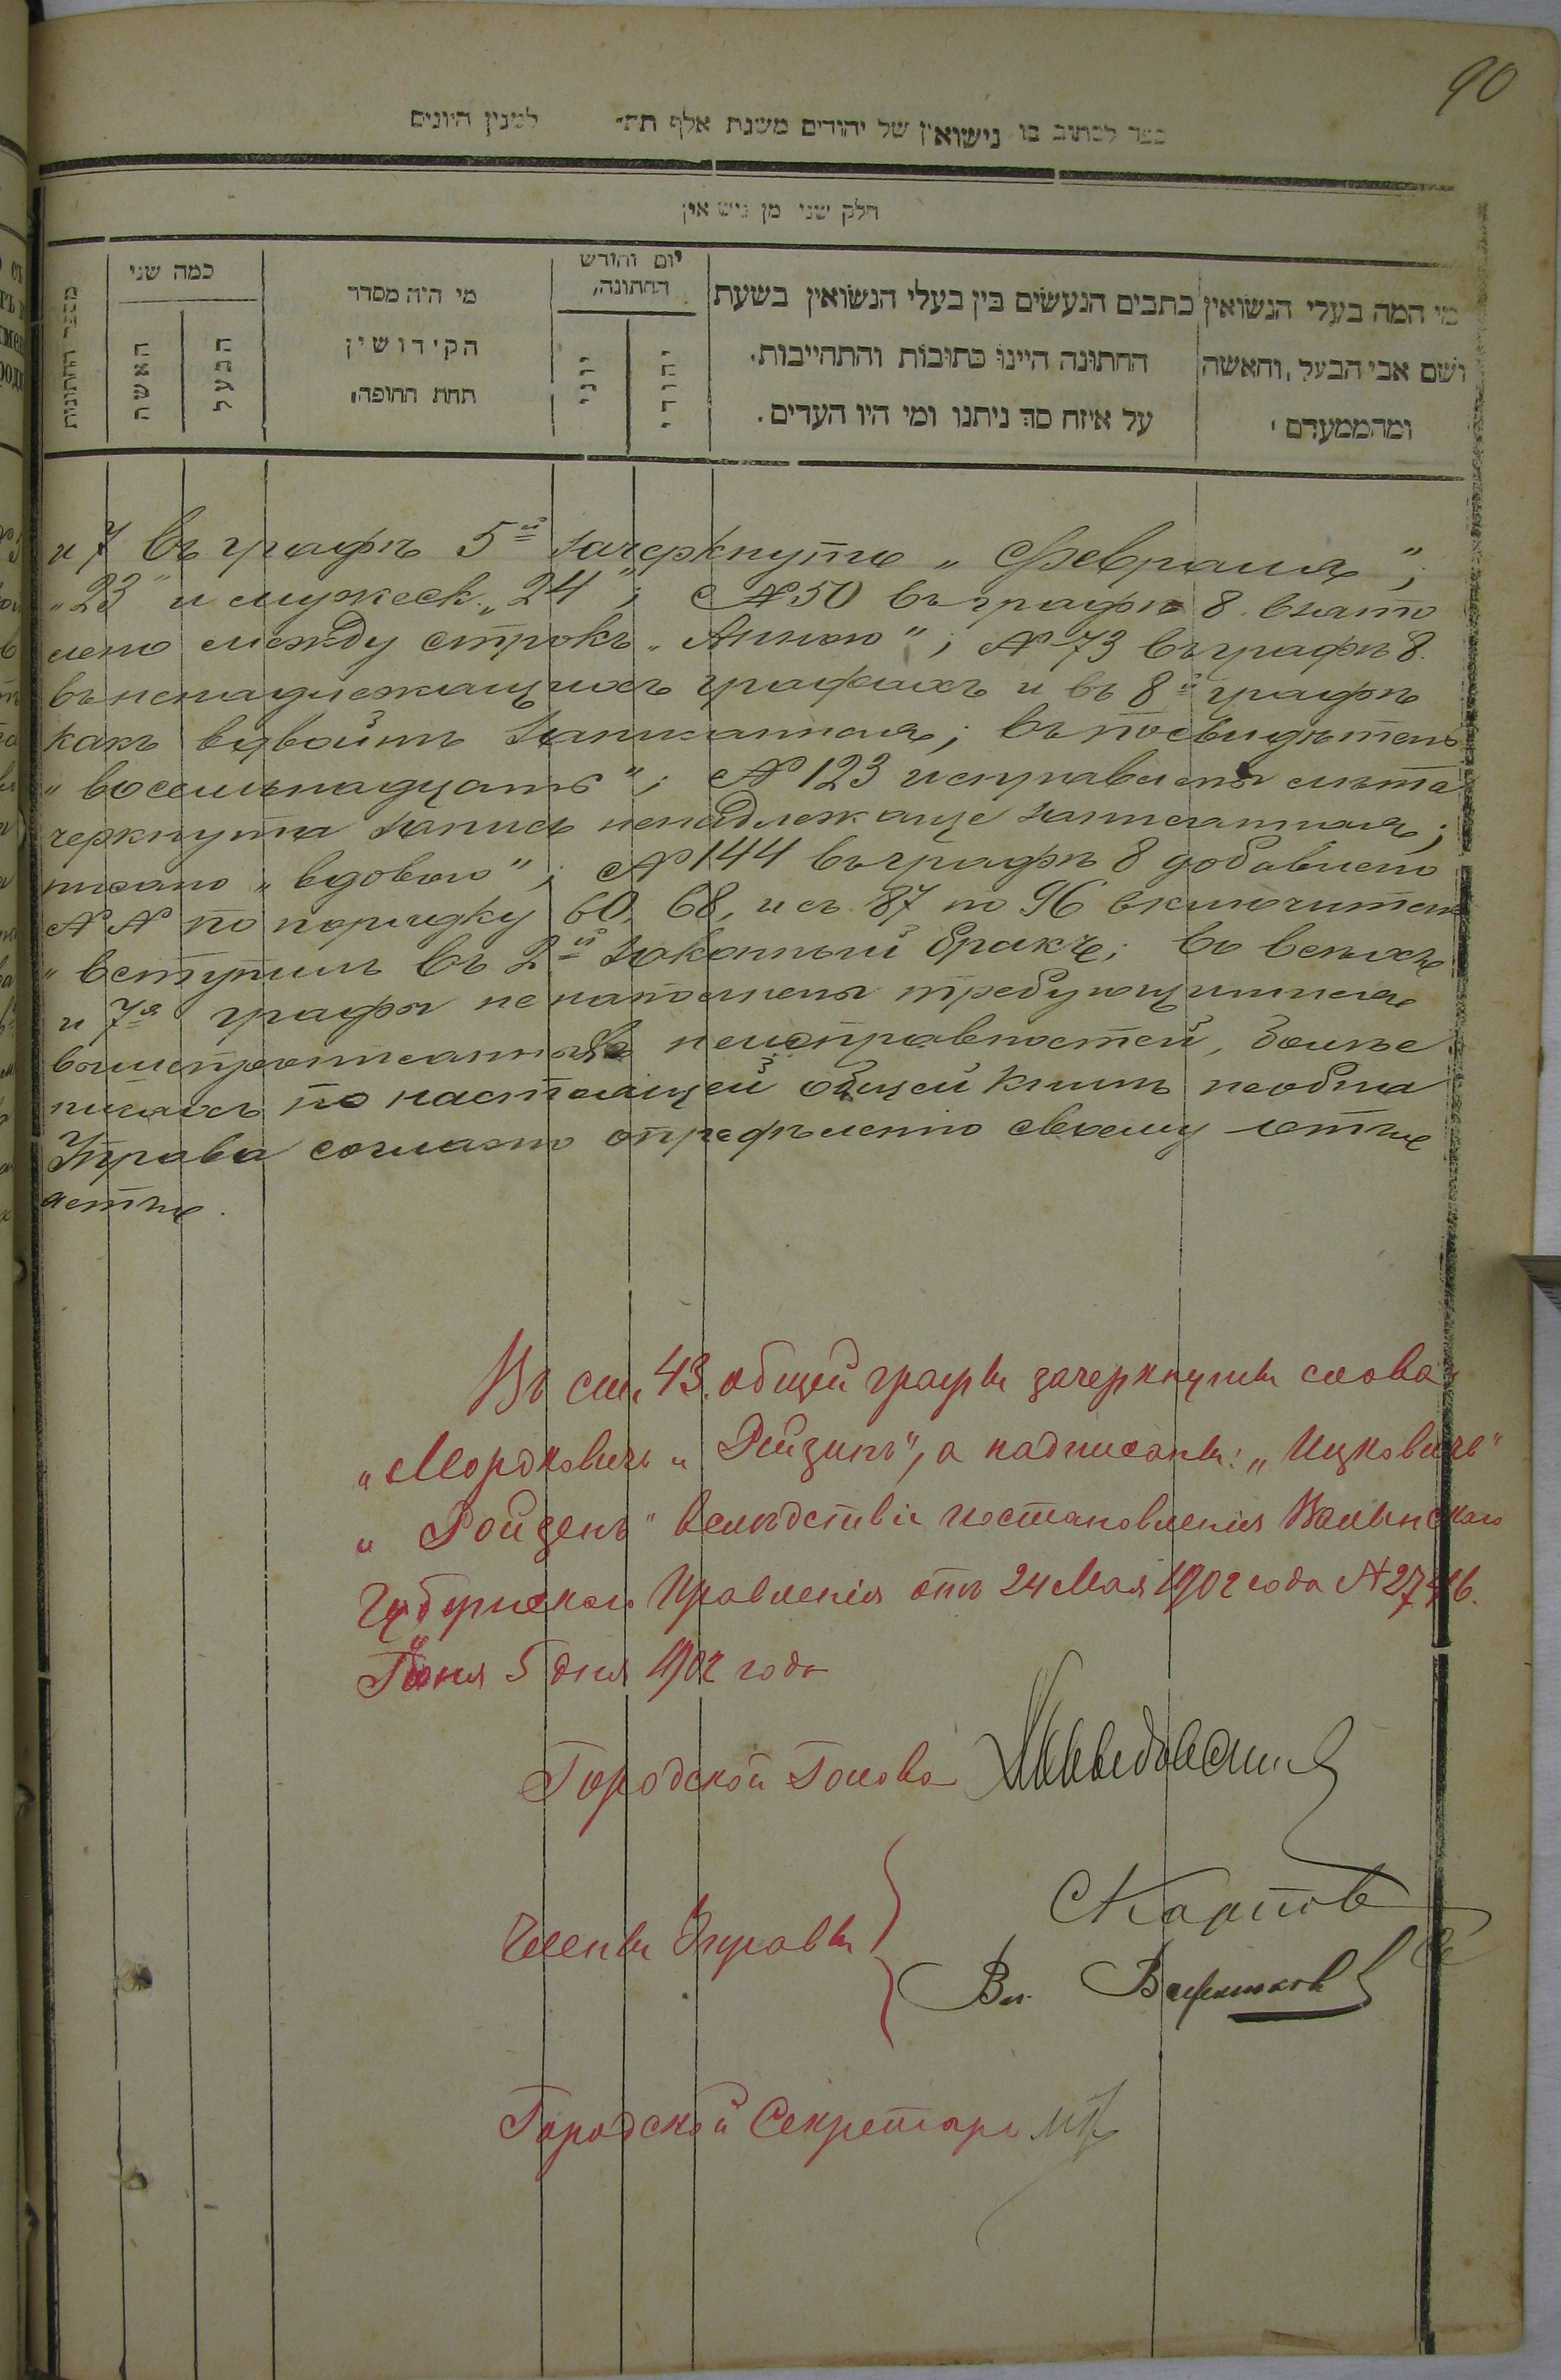 90
ספר לכתוב בו נישואין של יהודים משנת אלף תת״ למנין היונים
חלק שני מן נישואין
מי המה בעלי הנשואין ושם אבי הבעל, והאשה ומהממעדם
כתבים הנעשים בין בעלי הנשואין בשעת החתונה היינו כתובות והתחייבות, על איזה סך ניתנו ומי היו העדים.
יום וחודש החתונה,
יהודי
יוני
מי היה מסדר הקידושין תחת החופה.
כמה שני
הבעל
האשה
מספר החתונות
и 7 въ графѣ 5й зачеркнуто „Февраля";
„23" и мужеск. „24"; № 50 въ графѣ 8
лено между строкъ „Анною"; № 73 въ графѣ 8.
въ ненадлежащихъ графахъ и въ 8й графѣ
какъ вдвойнѣ написанная; въ
„восемьнадцать"; № 123 исправлены лѣта
черкнута запись ненадлежаще записанная;
писано „вдовою"; № 144 въ графѣ 8 добавлено
№№ по порядку 60, 68, и съ 87 по 96 включитель
„вступилъ въ 2й законный бракъ; во всѣхъ
и 7я графы не наполнены требующимися
вышепрописанныхъ неисправностей, болѣе
писяхъ по настоящей общей книгѣ необна
Управа согласно опредѣленію своему
Въ ст. 43. общей графы зачеркнуты слова
„Мордковичъ „Рейзинъ", а надписаны: „Ицковичъ"
„Ройзенъ" вслѣдствіе постановленія Волынскаго
Губернскаго Правленія отъ 24 Мая 1902 года №
Іюня 5 дня 1902 года
Городской Голова
Члены Управы
СКарпов
Вл.
Городской Секретарь